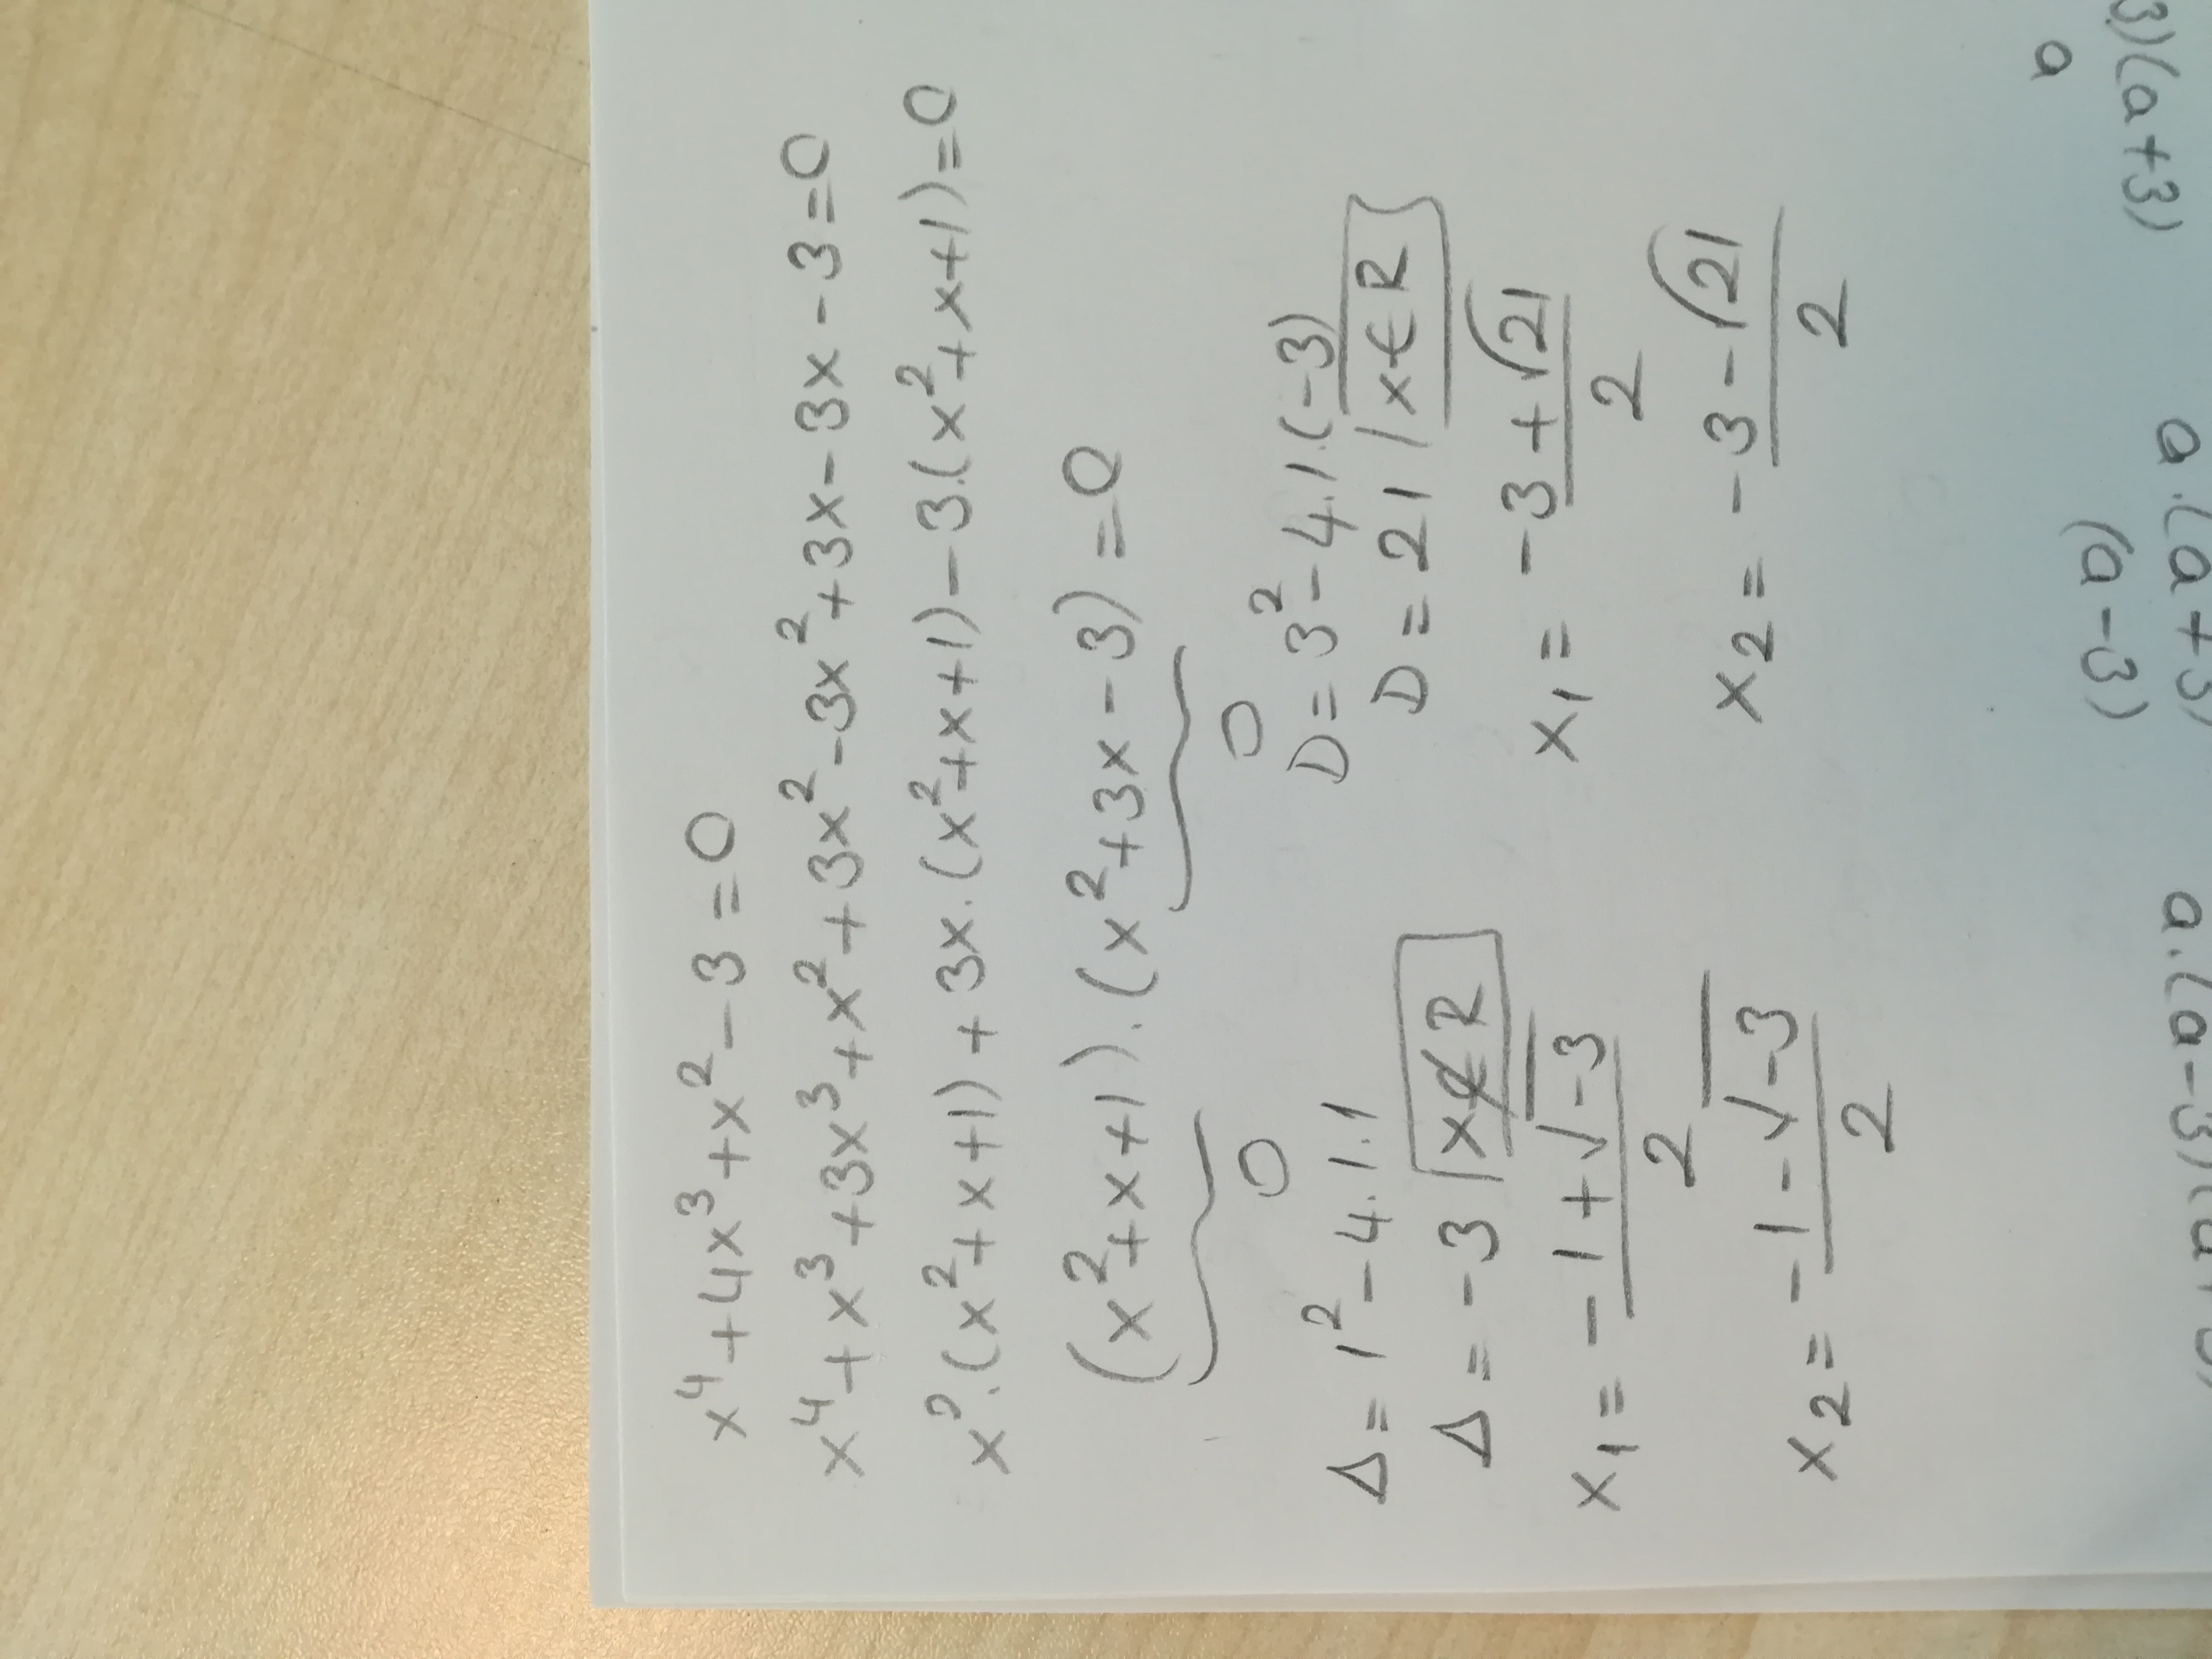 x⁴+4x³+x²-3=0
x⁴+x³+3x³+x²+3x²-3x²+3x-3x-3=0
x².(x²+x+1)+3x.(x²+x+1)-3.(x²+x+1)=0
(x²+x+1).(x²+3x-3)=0
0
Δ=1²-4.1.1
Δ=-3 x∉R
x₁= (-1+√-3)/2
x₂= (-1-√-3)/2
0
D=3²-4.1.(-3)
D=21 / x∈R
x₁= (-3+√21)/2
x₂= (-3-√21)/2
3)(a+3)
a
a.(a+3)
(a-3)
a.(a-3)